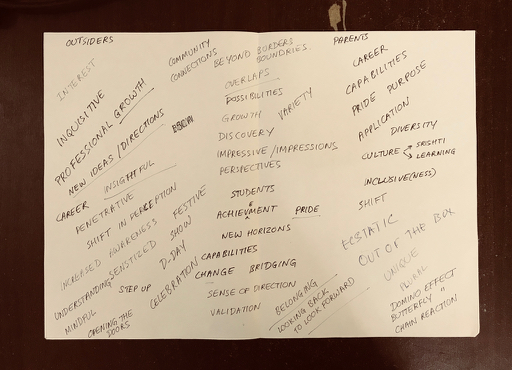 OUTSIDERS
INTEREST
INQUISITIVE
PROFESSIONAL GROWTH
NEW IDEAS / DIRECTIONS
CAREER
INSIGHTFUL
PENETRATIVE
SHIFT IN PERCEPTION
INCREASED AWARENESS
SENSTIZED
UNDERSTANDING
MINDFUL
STEP UP
OPENING THE
DOORS
COMMUNITY
CONNECTIONS
FESTIVE
SHOW
D-DAY
CELEBRATION
BEYOND BORDERS
BOUNDRIES.
OVERLAPS
POSSIBILITIES
GROWTH
VARIETY
DISCOVERY
IMPRESSIVE / IMPRESSIONS
PERSPECTIVES
STUDENTS
ACHIEVEMENT
PRIDE
NEW HORIZONS
CAPABILITIES
CHANGE
BRIDGING
SENSE OF DIRECTION
VALIDATION
BELONGING
LOOKING BACK
TO LOOK FORWARD
PARENTS
CAREER
CAPABILITIES
PRIDE PURPOSE
APPLICATION
DIVERSITY
CULTURE
SRISHTI
LEARNING
INCLUSIVE(NESS)
SHIFT
ECSTATIC
OUT OF THE BOX
UNIQUE
PLURAL
DOMINO EFFECT
BUTTERFLY "
CHAIN REACTION